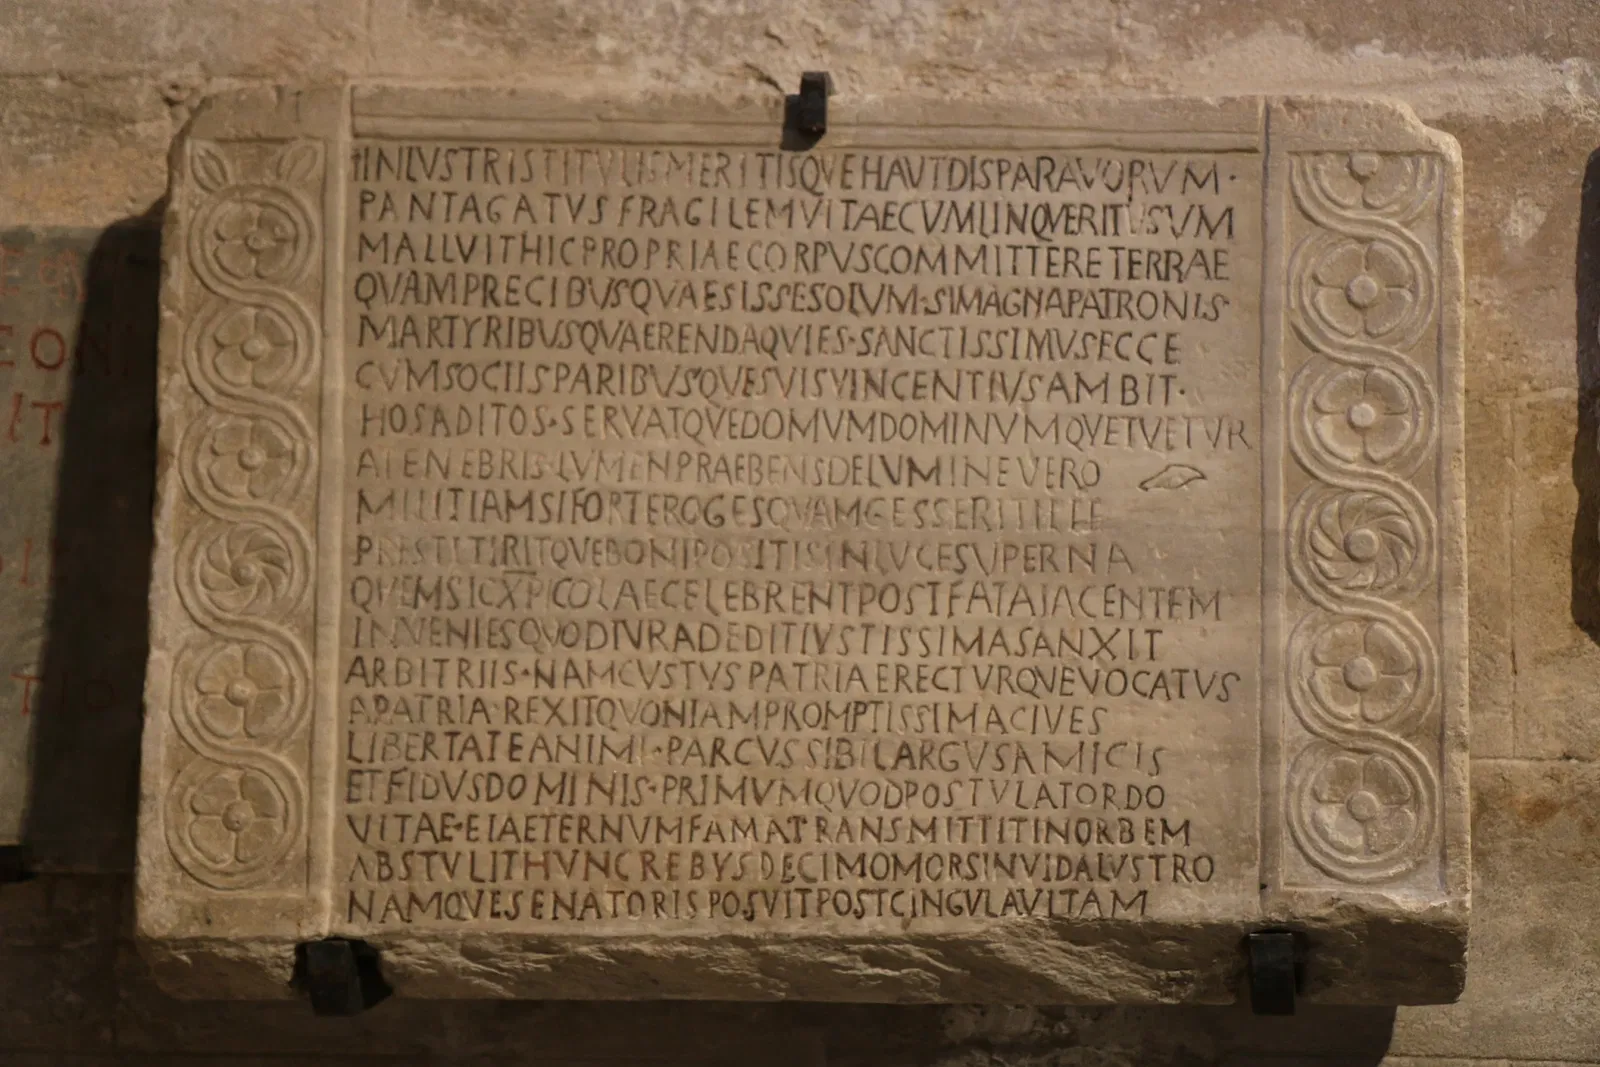 †INLVSTRIS TITVLIS MERITISQVE HAVT DISPAR AVORVM·
PANTAGATVS FRAGILEM VITAE CVM LINQVERIT VSVM
MALLVIT HIC PROPRIAE CORPVS COMMITTERE TERRAE
QVAM PRECIBVS QVAESISSE SOLVM·SI MAGNA PATRONIS
MARTYRIBVS QVAERENDA QVIES·SANCTISSIMVS ECCE
CVM SOCIIS PARIBVSQVE SVIS VINCENTIVS AMBIT·
HOS ADITOS·SERVATQVE DOMVM DOMINVMQVE TVETVR
A TENEBRIS·LVMEN PRAEBENS DE LVMINE VERO
MILITIAM SI FORTE ROGES QVAM GESSERIT ILLE
PRESTITIRITQVE BONI POSITIS IN LVCE SVPERNA
QVEM SIC XPICOLAE CELEBRENT POST FATA IACENTEM
INVENIES QVOD IVRA DEDIT IVSTISSIMA SANXIT
ARBITRIIS·NAM CVSTVS PATRIAE RECTVRQVE VOCATVS
A PATRIA·REXIT QVONIAM PROMPTISSIMA CIVES
LIBERTATE ANIMI·PARCVS SIBI LARGVS AMICIS
ET FIDVS DOMINIS·PRIMVM QVOD POSTVLAT ORDO
VITAE·ET AETERNVM FAMA TRANSMITTIT IN ORBEM
ABSTVLIT HVNC REBVS DECIMO MORS INVIDA LVSTRO
NAMQVE SENATORIS POSVIT POST CINGVLA VITAM